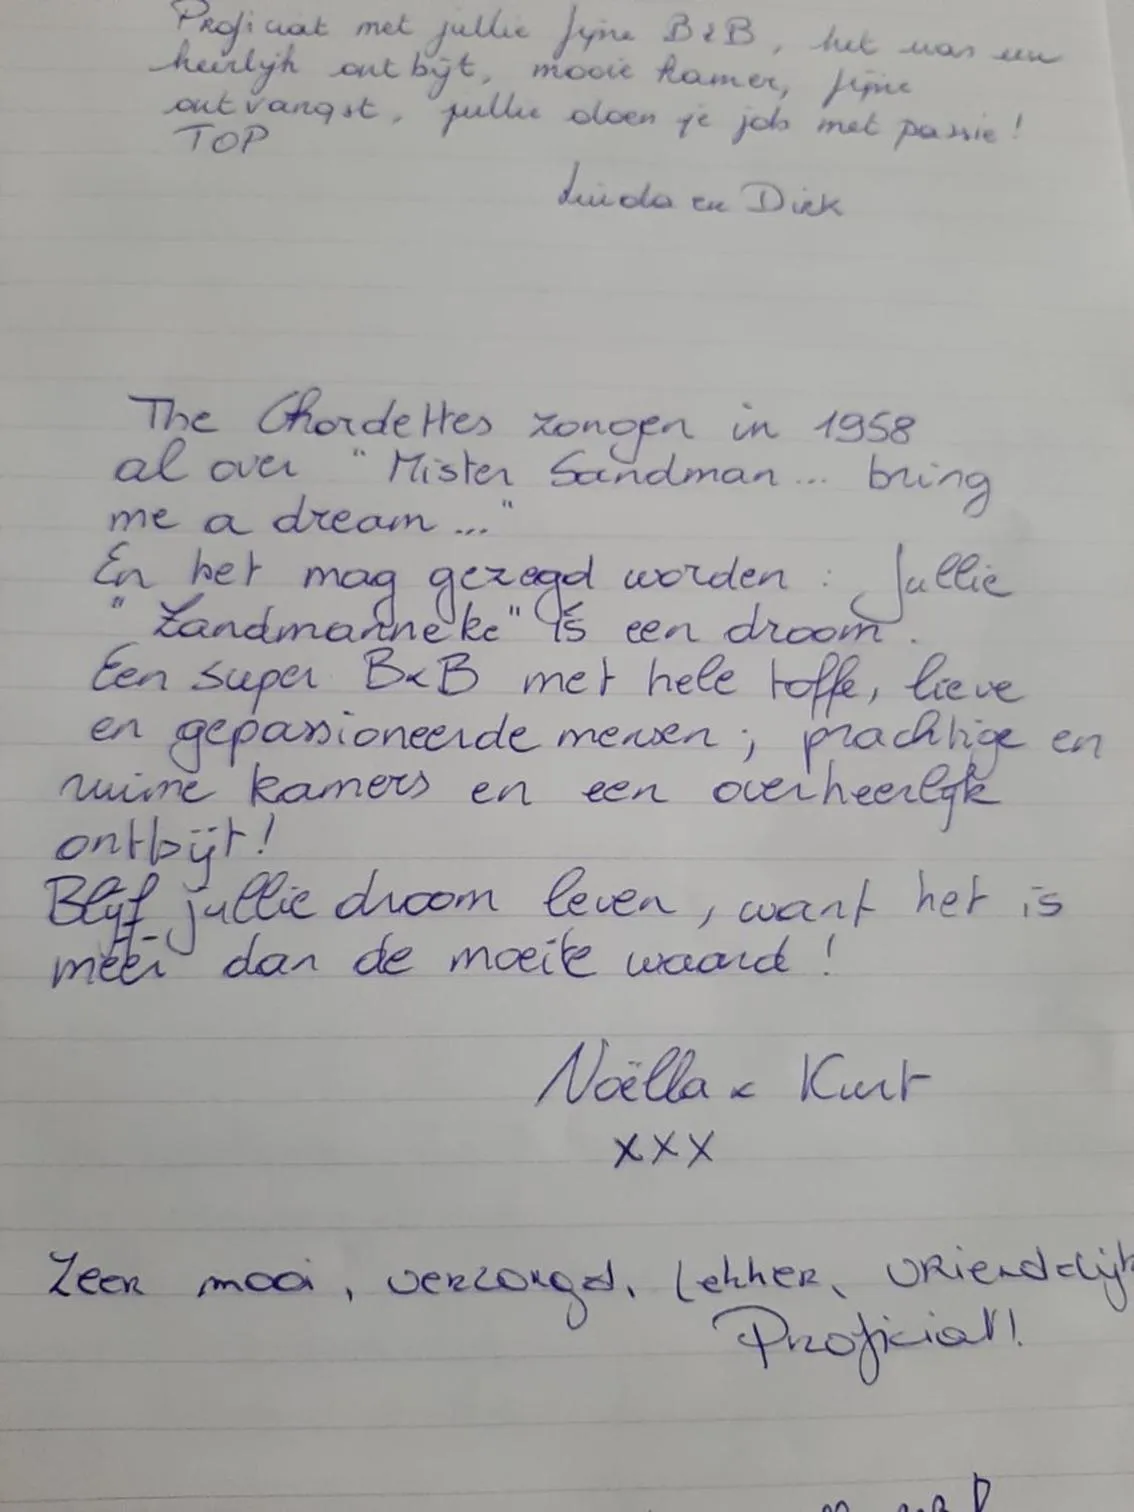 Proficiat met jullie fijne B&B, het was een
heerlijk ontbijt, mooie kamer, fijne
ontvangst, jullie doen je job met passie!
TOP
Linda en Dirk
The Chordettes zongen in 1958
al over "Mister Sandman... bring
me a dream..."
En het mag gezegd worden: Jullie
"Zandmanneke" is een droom.
Een super B&B met hele toffe, lieve
en gepassioneerde mensen; prachtige en
ruime kamers en een overheerlijk
ontbijt!
Blijf jullie droom leven, want het is
méér dan de moeite waard!
Noëlla & Kurt
xxx
Zeer mooi, verzorgd, lekker, vriendelijk
Proficiat!